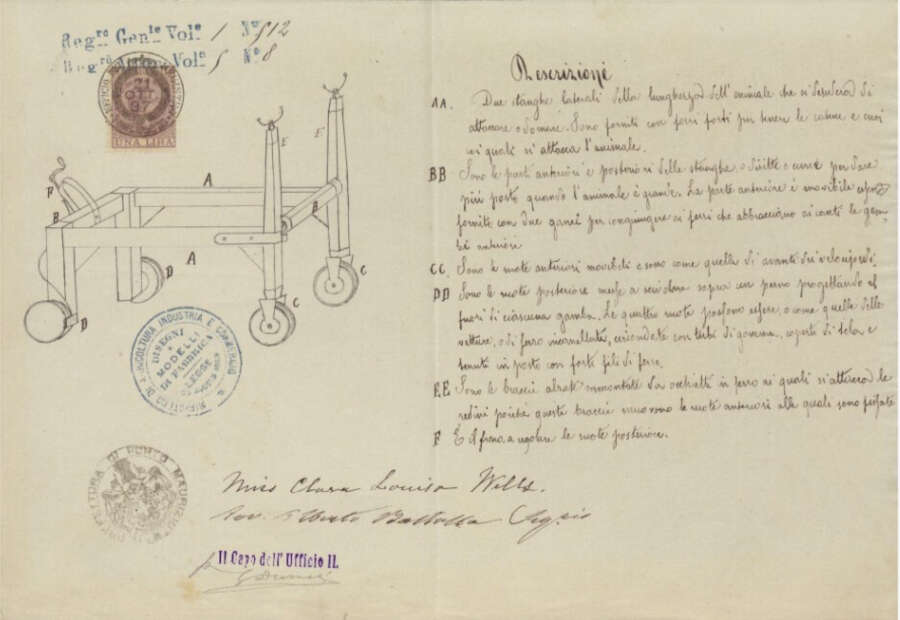 Reg.ro Gen.le Vol.e 1 N.o 512
Reg.ro Vol.e 5 N.o 8
21
OTT
97
UNA LIRA
A
A
B
B
C
C
D
D
E
E
F
MINISTERO DI AGRICOLTURA INDUSTRIA E COMMERCIO
DISEGNI
E
MODELLI
DI FABBRICA
LEGGE
PREFETTURA DI PORTO MAURIZIO
Descrizione
AA. Due stanghe laterali della lunghezza dell'animale che si desidera di
attaccare o domare. Sono forniti con ferri forti per tenere le catene e cuoi
coi quali si attacca l'animale.
BB Sono le parti anteriori e posteriori delle stanghe, o diritte o curve per dare
più posto quando l'animale è grande. La parte anteriore è movibile
fornite con due ganci per congiungere ai ferri che abbracciano le
anteriore
CC. Sono le ruote anteriori movibili e sono come quelle di avanti dei velocipedi.
DD Sono le ruote posteriore messe a sopra un perno progettando al
fuori di ciascuna gamba. Le quattro ruote possono essere, o come quelle delle
vetture, o di ferro circondate con tubi di gomma, coperti di tela e
tenuti in posto con forte fili di ferro.
EE Sono le braccie sormontate da occhietti in ferro ai quali s'attacca le
redini poiche queste braccie muovono le ruote anteriori alle quali sono fissate
F È il freno a regolare le ruote posteriore.
Miss Clara Louisa Wells.
Alberto Battolla
Il Capo dell'Ufficio II.